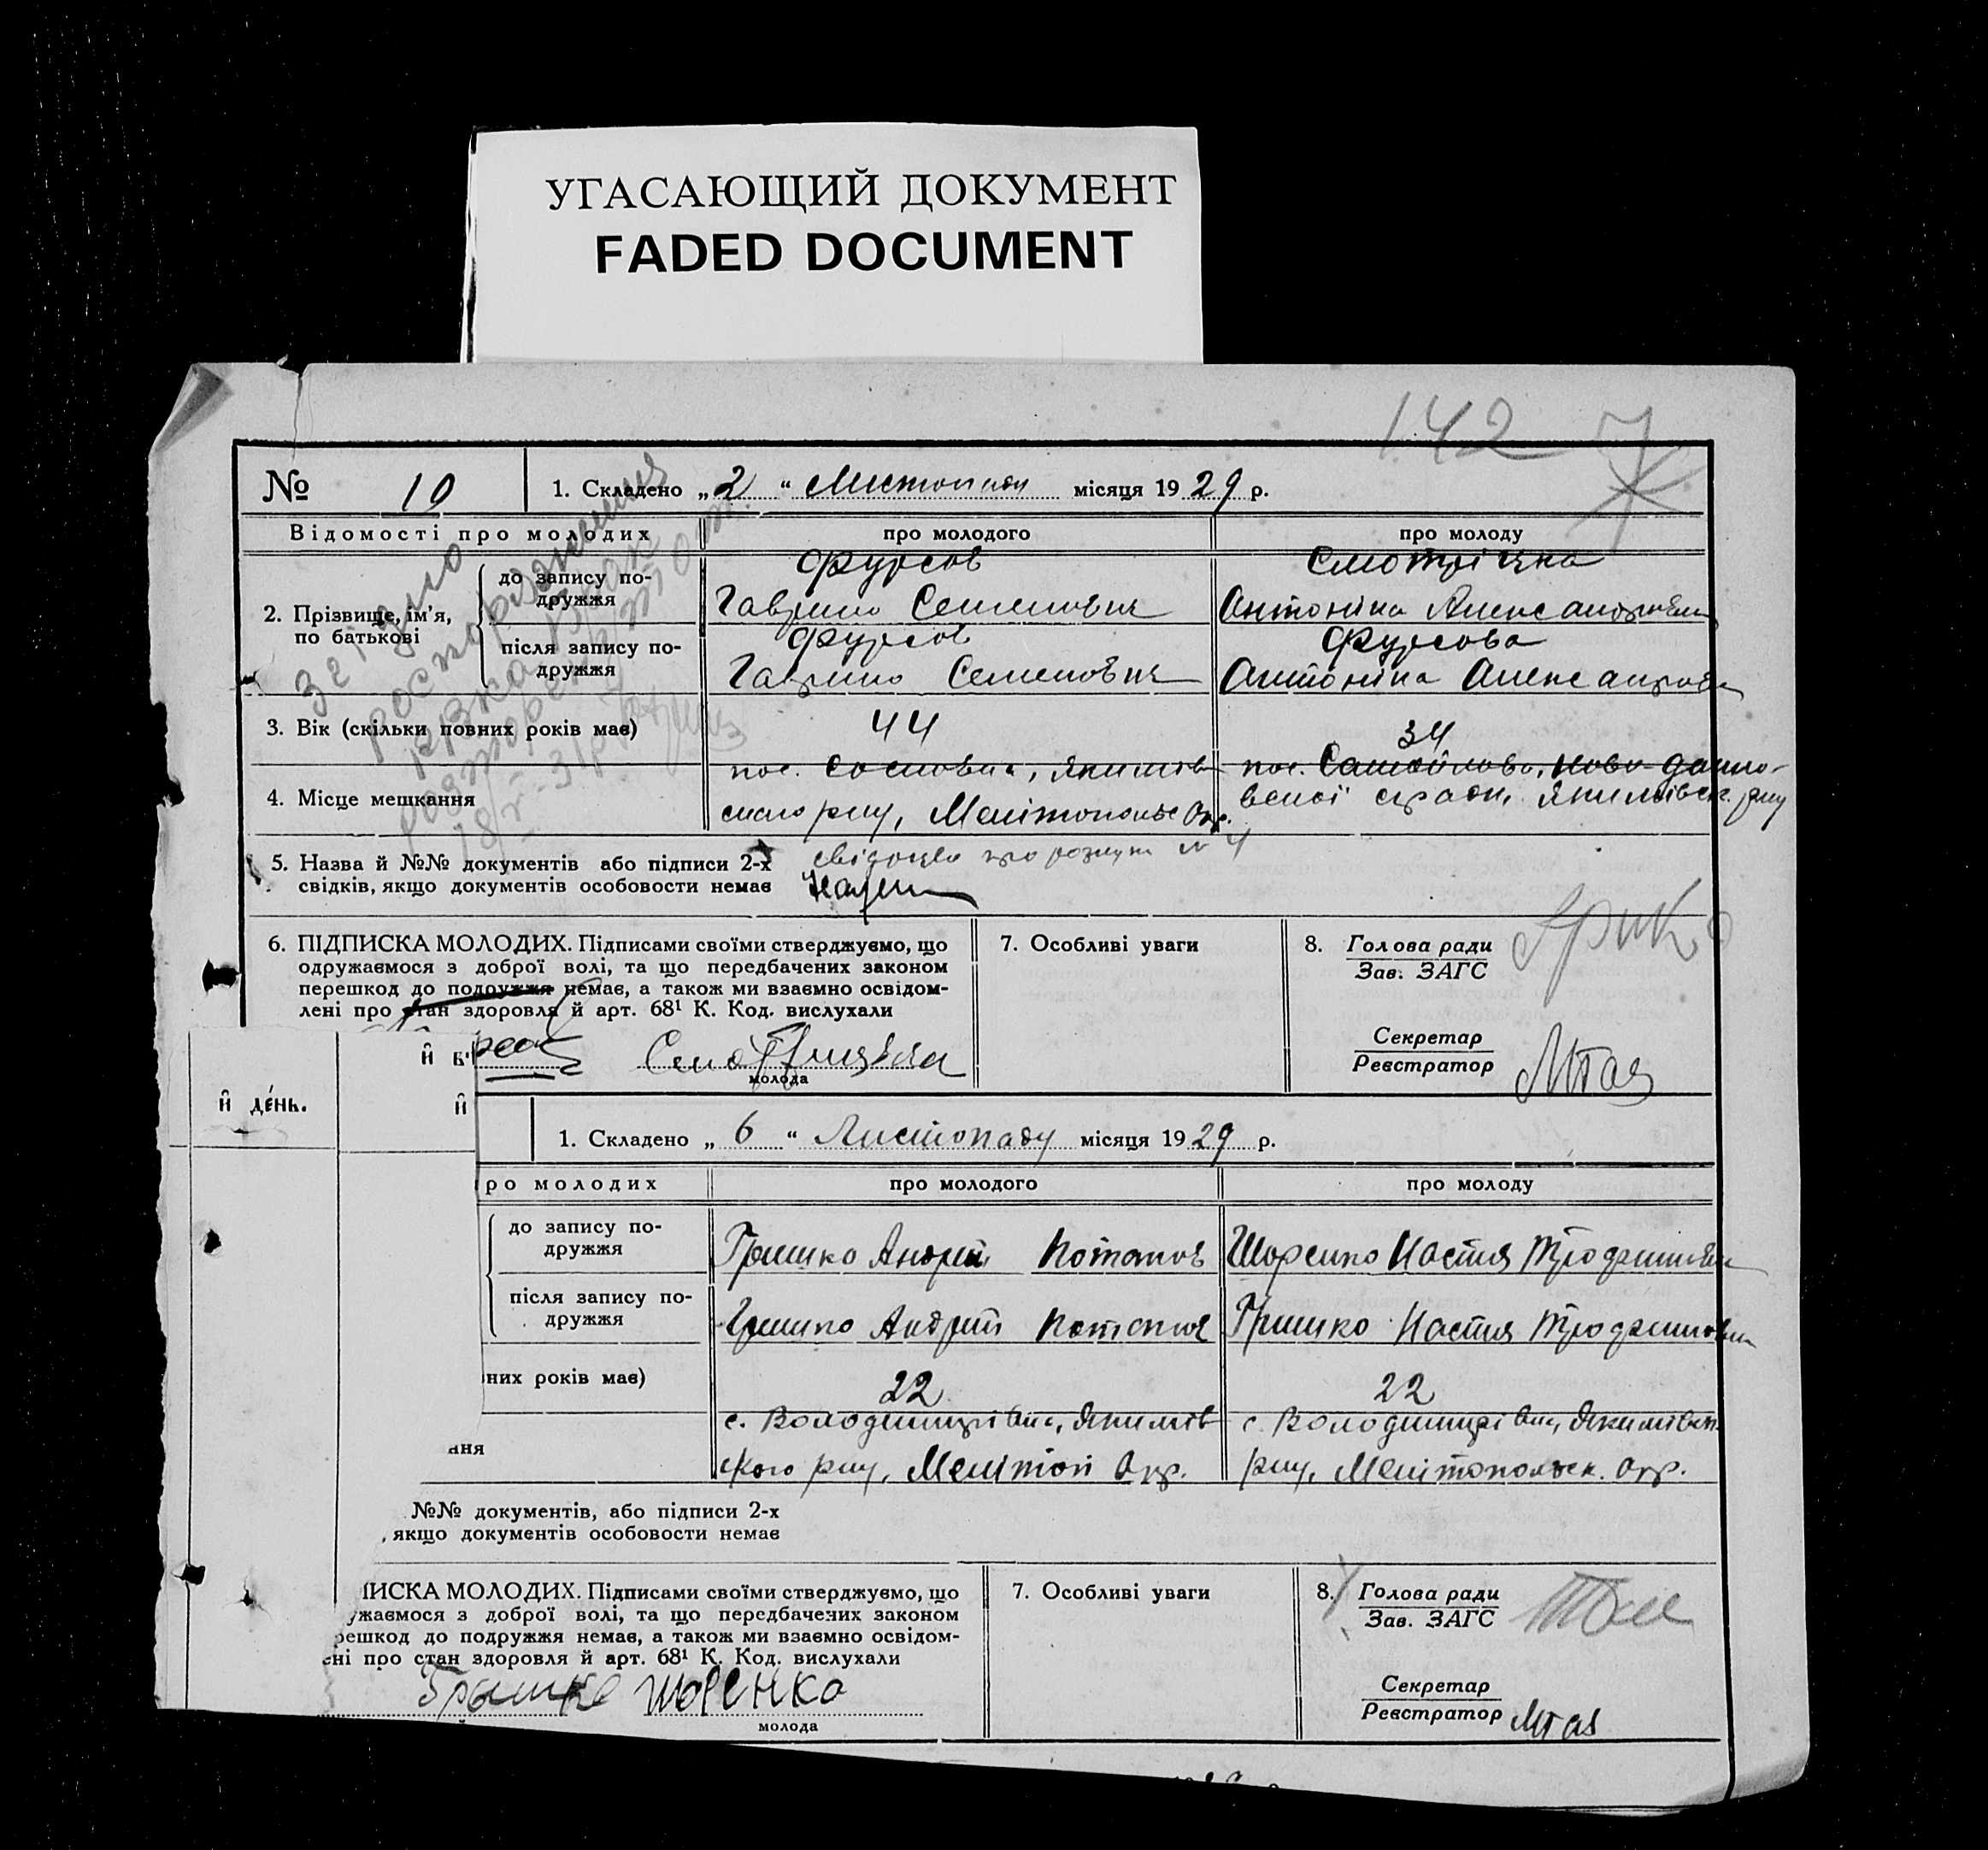 УГАСАЮЩИЙ ДОКУМЕНТ
FADED DOCUMENT
142
№ 10
1. Складено „2“ Листопаду місяця 1929 р.
Відомості про молодих
про молодого
про молоду
2. Прізвище, ім’я, по батькові
до запису по-
дружжя
Фурсов
Гаврило Семенович
Смотрічка
Антоніна Александровна
після запису по-
дружжя
Фурсов
Гаврило Семенович
Фурсова
Антоніна Александров
Згідно
роспорядження
3. Вік (скільки повних років має)
44
34
4. Місце мешкання
пос. Сосновка, Якимів
ського р-ну, Мелітопольс Окр.
пос. Самойлово, Ново-Дани-
вської сради, Якимівск. р-ну
5. Назва й №№ документів або підписи 2-х
свідків, якщо документів особовости немає
свідоцтво про розлуку № 4
6. ПІДПИСКА МОЛОДИХ. Підписами своїми стверджуємо, що
одружаємося з доброї волі, та що передбачених законом
перешкод до подружжя немає, а також ми взаємно освідом-
лені про стан здоровля й арт. 68¹ К. Код. вислухали
молода
7. Особливі уваги
8. Голова ради
Зав. ЗАГС
Секретар
Реєстратор
й в
й де́нь.
й
1. Складено „6“ Листопаду місяця 1929 р.
ро молодих
про молодого
про молоду
до запису по-
дружжя
Гришко Андрій Потапов
Шоренко Настя Трофимовна
після запису по-
дружжя
Гришко Андрій Потапов
Гришко Настя Трофимовна
них років має)
22
22
ння
с. Володимирівка, Якимів
ського р-ну, Мелітоп Окр.
с. Володимирівка, Якимівск.
р-ну, Мелітопольск. Окр.
№№ документів, або підписи 2-х
, якщо документів особовости немає
ИСКА МОЛОДИХ. Підписами своїми стверджуємо, що
ужаємося з доброї волі, та що передбачених законом
решкод до подружжя немає, а також ми взаємно освідом-
ені про стан здоровля й арт. 68¹ К. Код. вислухали
Гришко Шоренко
молода
7. Особливі уваги
8. Голова ради
Зав. ЗАГС
Секретар
Реєстратор